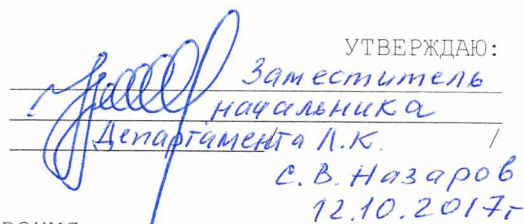 УТВЕРЖДАЮ:
Заместитель
начальника
Департамента Л.К.
/
С.В. Назаров
12.10.2017г